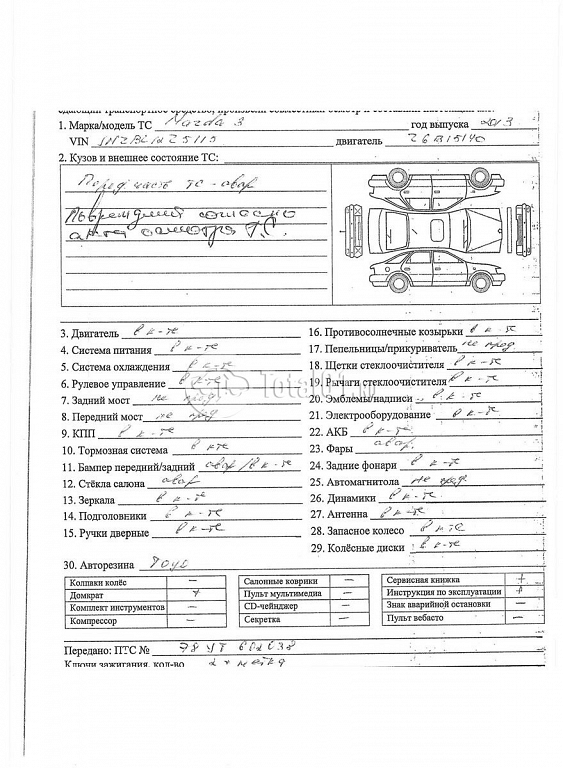 1. Марка/модель ТС Mazda 3 год выпуска 2013
VIN двигатель
2. Кузов и внешнее состояние ТС:
Перед часть ТС - авар
Повреждения согласно
акта осмотра Т.С.
3. Двигатель в к-те
4. Система питания в к-те
5. Система охлаждения в к-те
6. Рулевое управление в к-те
7. Задний мост не пред
8. Передний мост не пред
9. КПП в к-те
10. Тормозная система в к-те
11. Бампер передний/задний авар/в к-те
12. Стёкла салона авар
13. Зеркала в к-те
14. Подголовники в к-те
15. Ручки дверные в к-те
16. Противосолнечные козырьки в к-те
17. Пепельницы/прикуриватель не пред
18. Щетки стеклоочистителя в к-те
19. Рычаги стеклоочистителя в к-те
20. Эмблемы/надписи в к-те
21. Электрооборудование в к-те
22. АКБ в к-те
23. Фары авар.
24. Задние фонари в к-те
25. Автомагнитола не пред
26. Динамики в к-те
27. Антенна в к-те
28. Запасное колесо в к-те
29. Колёсные диски в к-те
30. Авторезина
Колпаки колёс —
Домкрат +
Комплект инструментов —
Компрессор —
Салонные коврики —
Пульт мультимедиа —
CD-чейнджер —
Секретка —
Сервисная книжка +
Инструкция по эксплуатации +
Знак аварийной остановки —
Пульт вебасто —
Передано: ПТС № 78 УТ 602038
Ключи зажигания, кол-во 2 + метка
Total01.ru